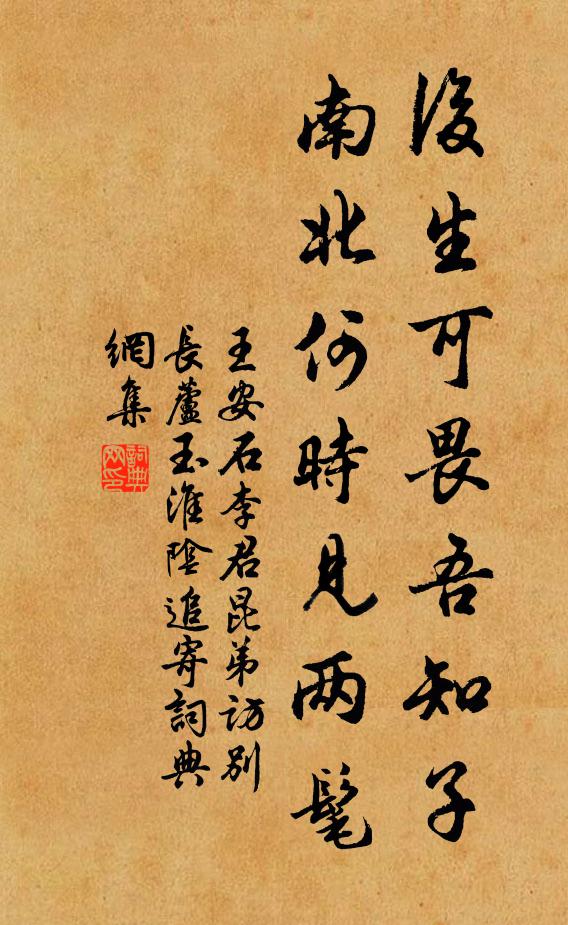 後生可畏吾知子
南北何時見两髦
王安石李君昆弟訪別
長蘆玉淮陰追寄詞典
網集
詞典
网印